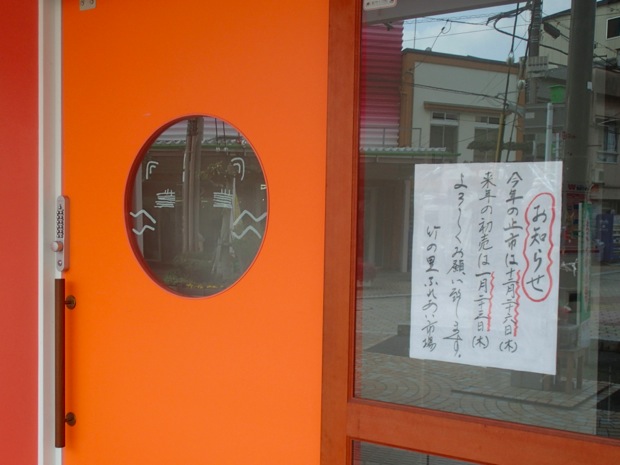 お知らせ
今年の上市は十二月二十六日(木)
来年の初売は一月二十三日(木)
よろしくお願い致します。
竹の里ふれあい市場